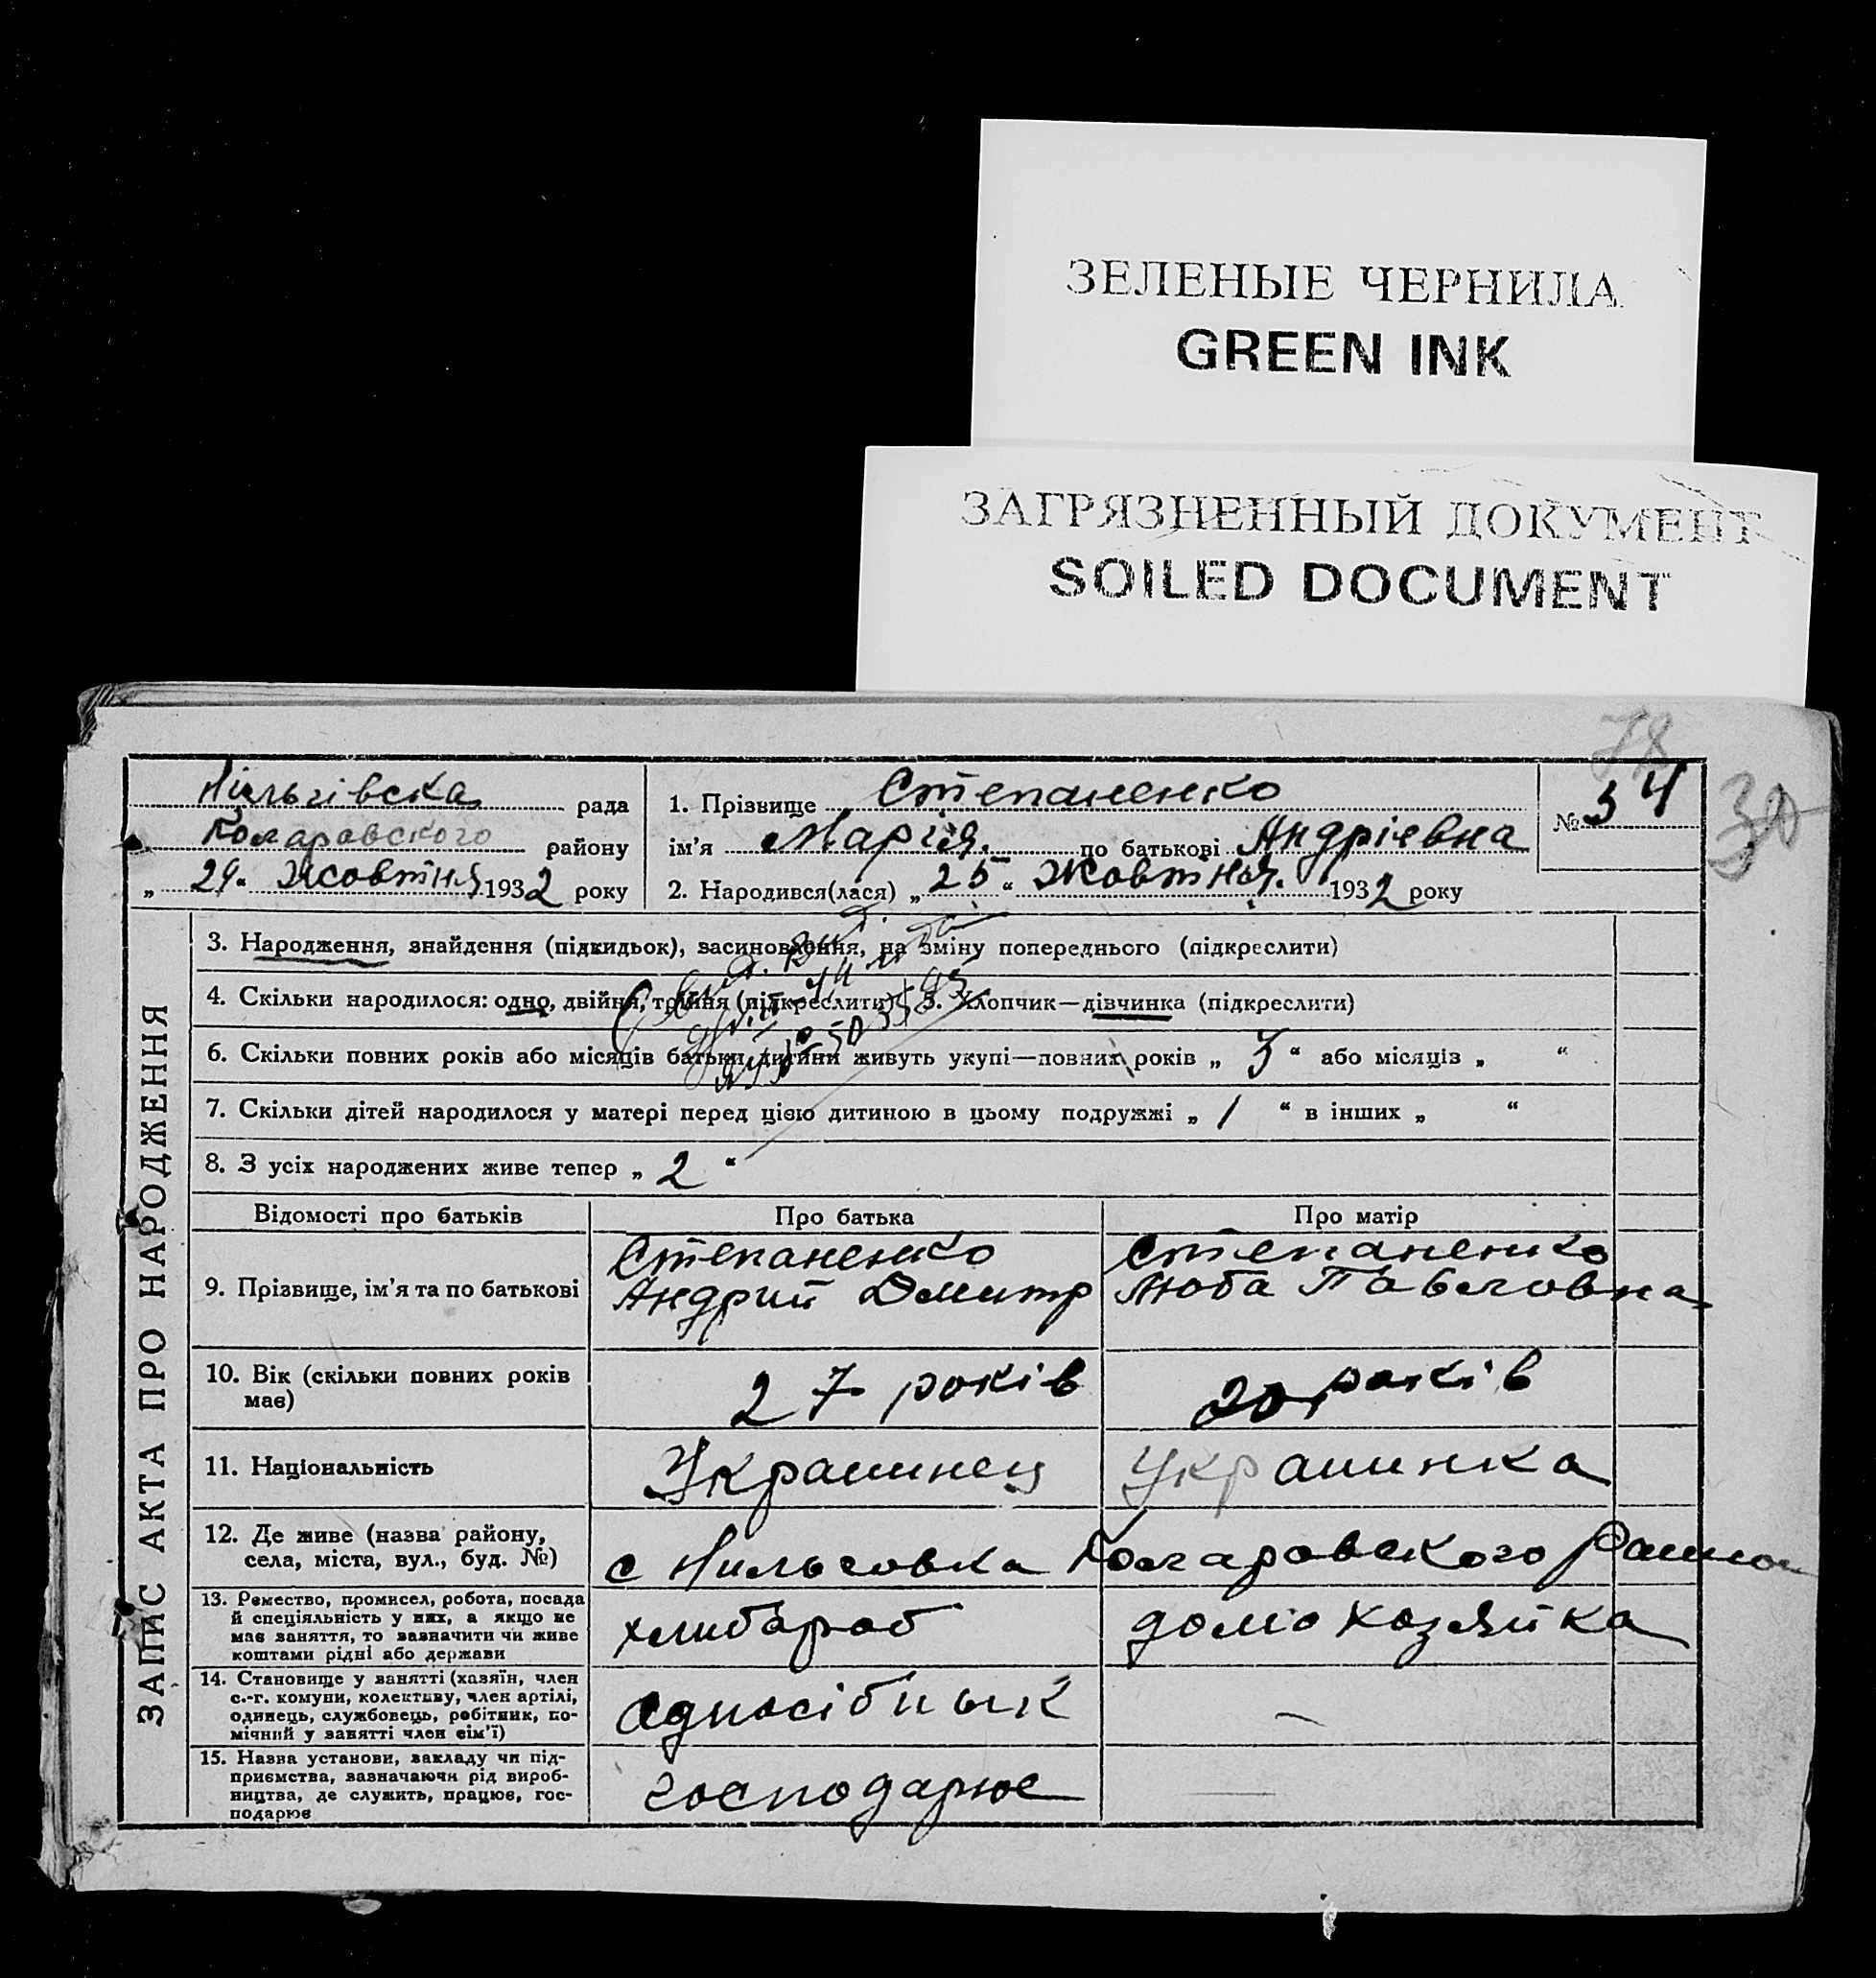 ЗЕЛЕНЫЕ ЧЕРНИЛА
GREEN INK
ЗАГРЯЗНЕННЫЙ ДОКУМЕНТ
SOILED DOCUMENT
78
30
Нільгівска рада
Коларовского району
„ 29 “ Жовтня 1932 року
1. Прізвище Степаненко
ім’я Марія. по батькові Андріевна
2. Народився(лася) „ 25 “ Жовтня. 1932 року
№ 34
ЗАПИС АКТА ПРО НАРОДЖЕННЯ
3. Народження, знайдення (підкидьок), засиновлення, на зміну попереднього (підкреслити)
4. Скільки народилося: одно, двійня, трійня (підкреслити) 5. Хлопчик—дівчинка (підкреслити)
6. Скільки повних років або місяців батьки дитини живуть укупі—повних років „ 3 “ або місяців „ “
7. Скільки дітей народилося у матері перед цією дитиною в цьому подружжі „ 1 “ в інших „ “
8. З усіх народжених живе тепер „ 2 “
Відомості про батьків
Про батька
Про матір
9. Прізвище, ім’я та по батькові
Степаненко
Андрий Дмитр
Степаненко
Люба Павловна
10. Вік (скільки повних років
має)
27 років
20 років
11. Національність
Украинец
Украинка
12. Де живе (назва району,
села, міста, вул., буд. №)
с Нильговка Коларовского Раион
13. Ремество, промисел, робота, посада
й спеціяльність у них, а якщо не
має заняття, то зазначити чи живе
коштами рідні або держави
хлибароб
домохозяйка
14. Становище у занятті (хазяїн, член
с.-г. комуни, колективу, член артілі,
одинець, службовець, робітник, по-
мічний у занятті член сім’ї)
односібнык
—
15. Назва установи, закладу чи під-
приємства, зазначаючи рід вироб-
ництва, де служить, працює, гос-
подарює
господарюе
—